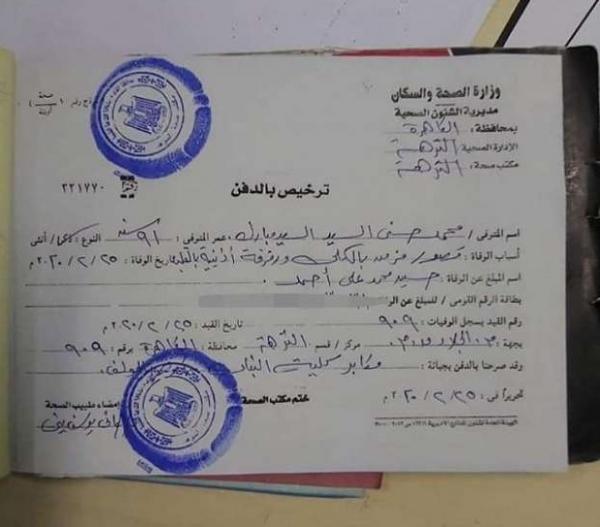 وزارة الصحة والسكان
مديرية الشئون الصحية
بمحافظة : القاهرة
الإدارة الصحية النزهة
مكتب صحة : النزهة
ترخيص بالدفن
٢٢١٧٧٠
اسم المتوفى / محمد حسنى السيد السيد مبارك عمر المتوفى : ٩١ سنة النوع : ذكر / أنثى
أسباب الوفاة : قصور مزمن بالكلى ورفرفة أذنية بالقلب تاريخ الوفاة : ٢٠٢٠/٢/٢٥ م
اسم المبلغ عن الوفاة : حسيد محمد على أحمد
بطاقة الرقم القومى / للمبلغ عن
رقم القيد بسجل الوفيات : ٩٠٩ تاريخ القيد : ٢٠٢٠/٢/٢٥ م
بجهة : مركز / قسم النزهة محافظة : القاهرة برقم : ٩٠٩
وقد صرحنا بالدفن بجبانة : مقابر كلية البنات
تحريراً فى : ٢٠٢٠/٢/٢٥ م ختم مكتب الصحة إمضاء طبيب الصحة